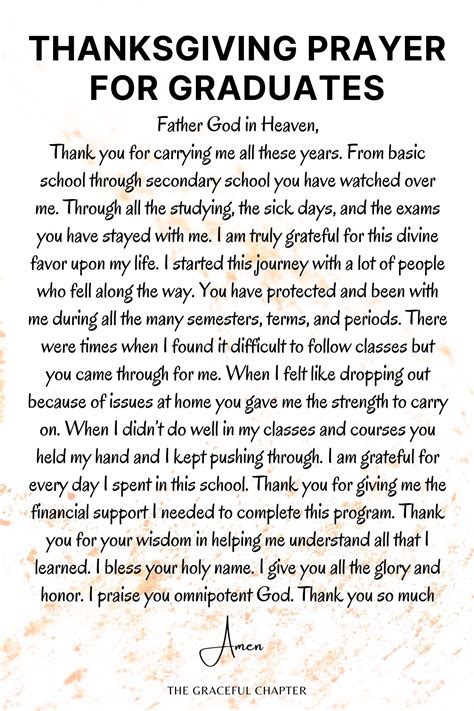 THANKSGIVING PRAYER
FOR GRADUATES
Father God in Heaven,
Thank you for carrying me all these years. From basic
school through secondary school you have watched over
me. Through all the studying, the sick days, and the exams
you have stayed with me. I am truly grateful for this divine
favor upon my life. I started this journey with a lot of people
who fell along the way. You have protected and been with
me during all the many semesters, terms, and periods. There
were times when I found it difficult to follow classes but
you came through for me. When I felt like dropping out
because of issues at home you gave me the strength to carry
on. When I didn't do well in my classes and courses you
held my hand and I kept pushing through. I am grateful for
every day I spent in this school. Thank you for giving me the
financial support I needed to complete this program. Thank
you for your wisdom in helping me understand all that I
learned. I bless your holy name. I give you all the glory and
honor. I praise you omnipotent God. Thank you so much
Amen
THE GRACEFUL CHAPTER